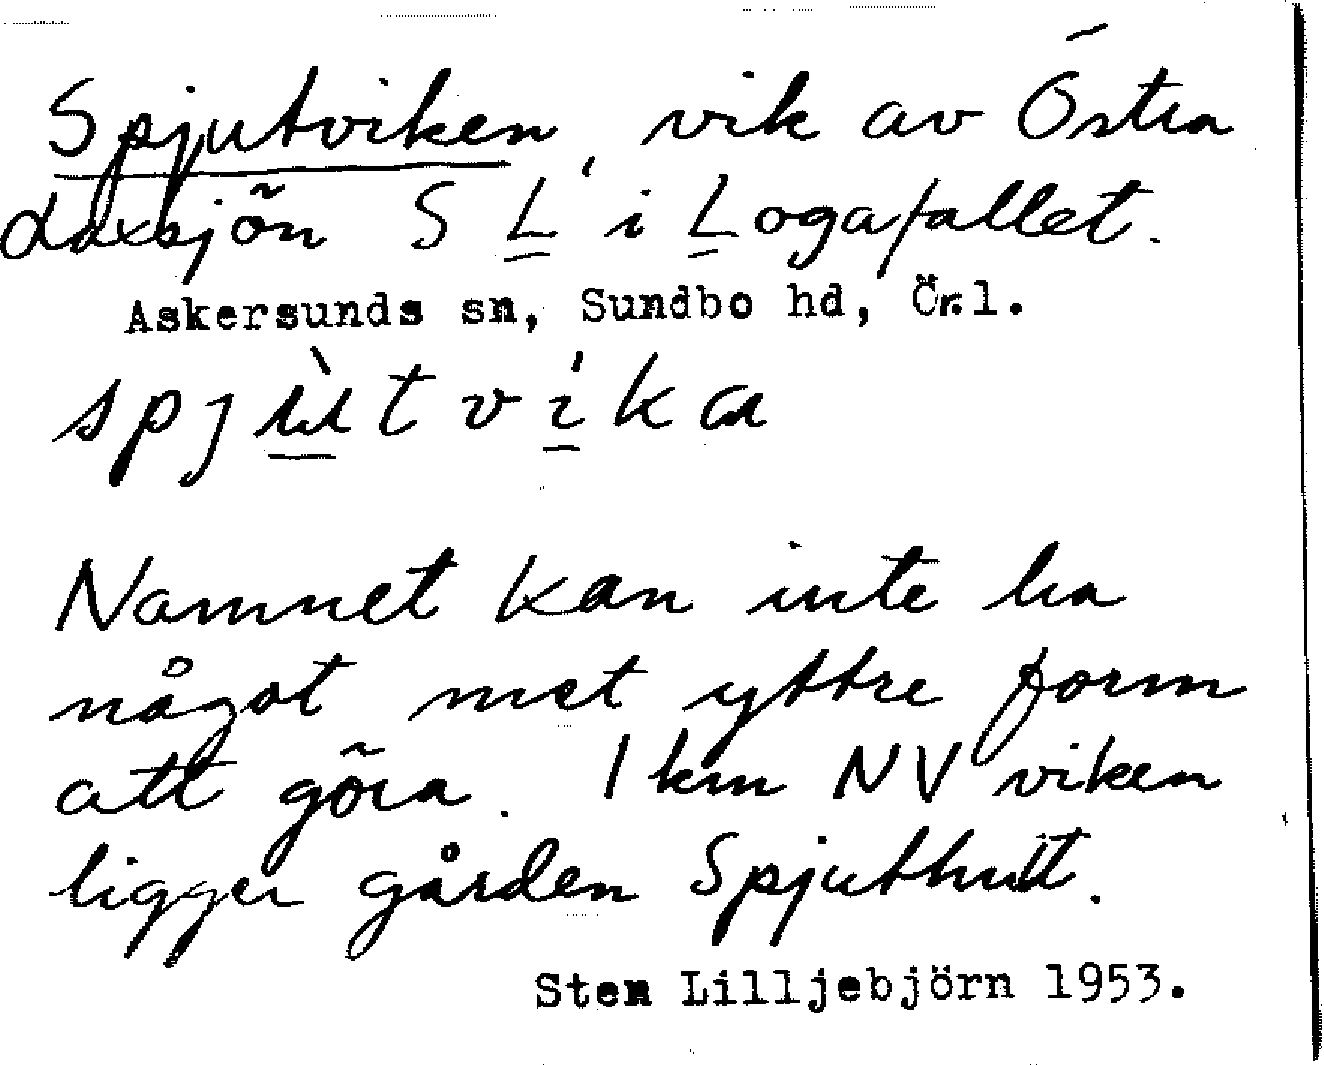 Spjutviken, vik av Östra
Laxsjön S L i Logafallet.
Askersunds sn, Sundbo hd, Ör.l.
spjùtvíka
Namnet kan inte ha
något met yttre form
att göra. 1 km NV viken
ligger gården Spjuthult.
Sten Lilljebjörn 1953.